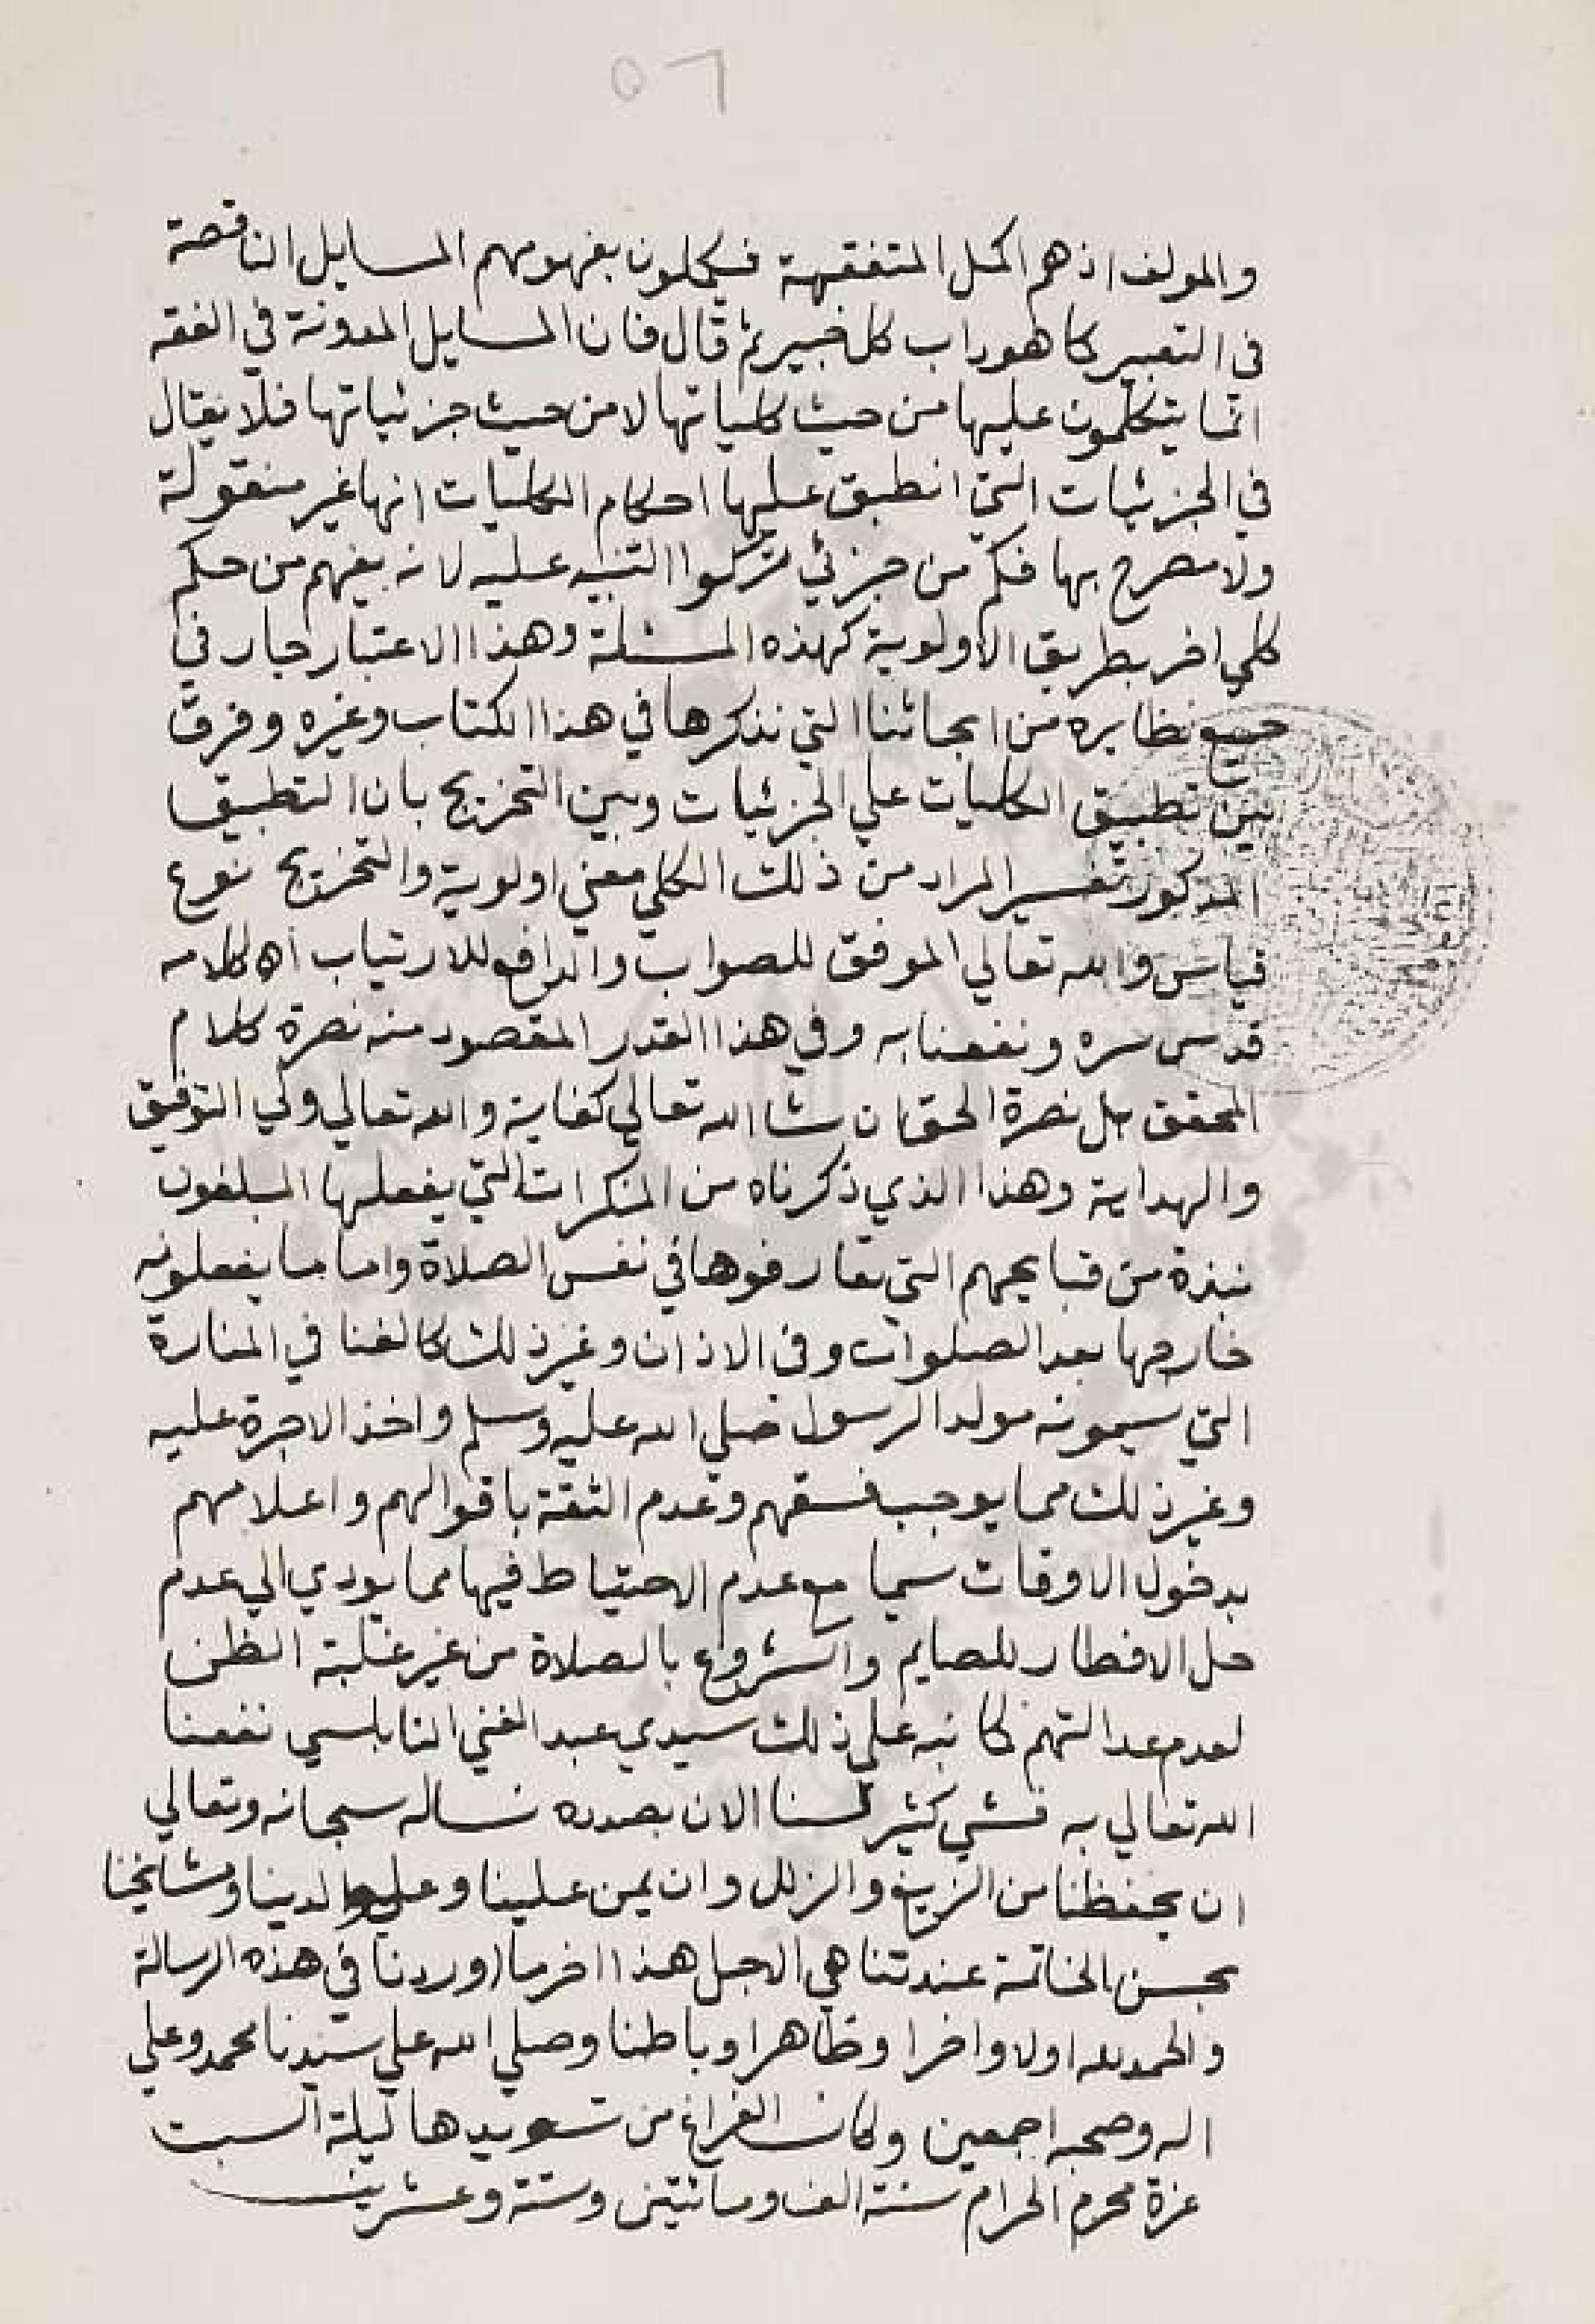 ٥٦
والمولف اذ هم الكمل المتفقهة فيكملون بفهومهم المسايل الناقصة
في التعبير كما هو داب كل خبير ثم قال فان المسايل المدونة في الفقه
انما يتكلمون عليها من حيث كلياتها لا من حيث جزئياتها فلا يقال
في الجزئيات التي انطبق عليها احكام الكليات انها غير منقولة
ولا مصرح بها فكم من جزئي تركوا التنبيه عليه لانه يفهم من حكم
كلي اخر بطريق الاولوية كهذه المسئلة وهذا الاعتبار جار في
جميع نظايره من ابحاثنا التي نذكرها في هذا الكتاب وغيره وفرق
بين تطبيق الكليات علي الجزئيات وبين التخريج بان التطبيق
المذكور تفسير المراد من ذلك الكلي معني اولوية والتخريج نوع
قياس والله تعالي الموفق للصواب والدافع للارتياب اه كلامه
قدس سره ونفعنا به وفي هذا القدر المقصود منه نصرة كلام
المحقق بل نصرة الحق ان شا الله تعالي كفاية والله تعالي ولي التوفيق
والهداية وهذا الذي ذكرناه من المنكرات التي يفعلها المبلغون
نبذة من قبايحهم التي تعارفوها في نفس الصلاة واما ما يفعلونه
خارجها بعد الصلوات وفي الاذان وغير ذلك كالغنا في المنارة
التي سيمونه مولد الرسول صلي الله عليه وسلم واخذ الاجرة عليه
وغير ذلك مما يوجب فسقهم وعدم الثقة باقوالهم واعلامهم
بدخول الاوقات سيما مع عدم الاحتياط فيها مما يودي الي عدم
حل الافطار للصايم والشروع بالصلاة من غير غلبة الظن
لعدم عدالتهم كما نبه علي ذلك سيدي عبد الغني النابلسي نفعنا
الله تعالي به فشي كثير لسنا الان بصدده نساله سبحانه وتعالي
ان يحفظنا من الزيغ والزلل وان يمن علينا وعلي والدينا ومشايخنا
بحسن الخاتمة عند تناهي الاجل هذا اخر ما اوردنا في هذه الرسالة
والحمد لله اولا واخرا وظاهرا وباطنا وصلي الله علي سيدنا محمد وعلي
اله وصحبه اجمعين وكان الفراغ من تسويدها ليلة السبت
غرة محرم الحرام سنة الف ومائتين وستة وعشرين